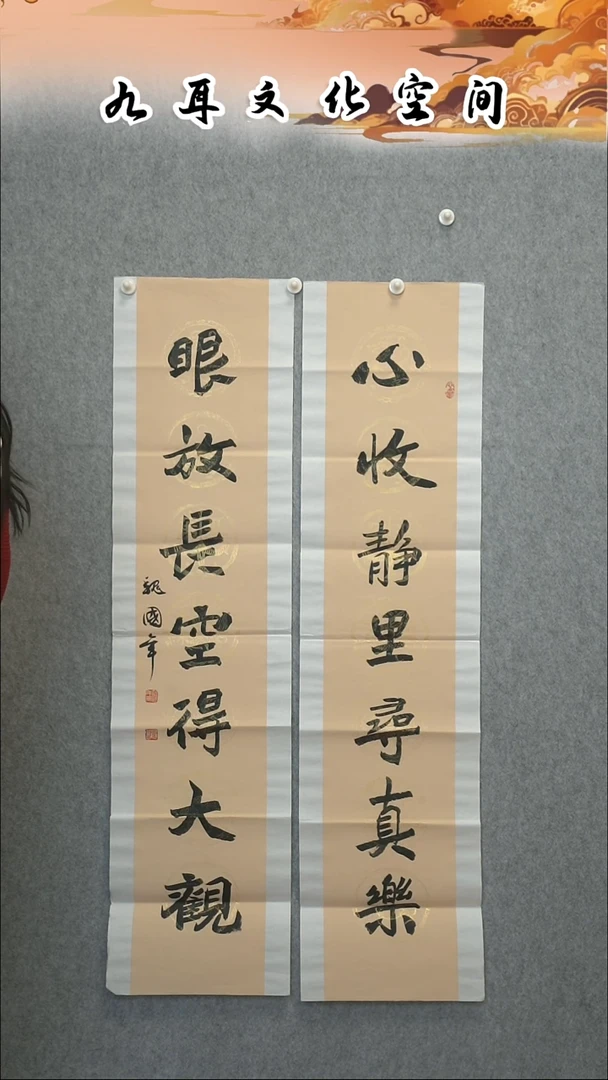 九耳文化空间
心收静里尋真樂
眼放長空得大觀
魏國年